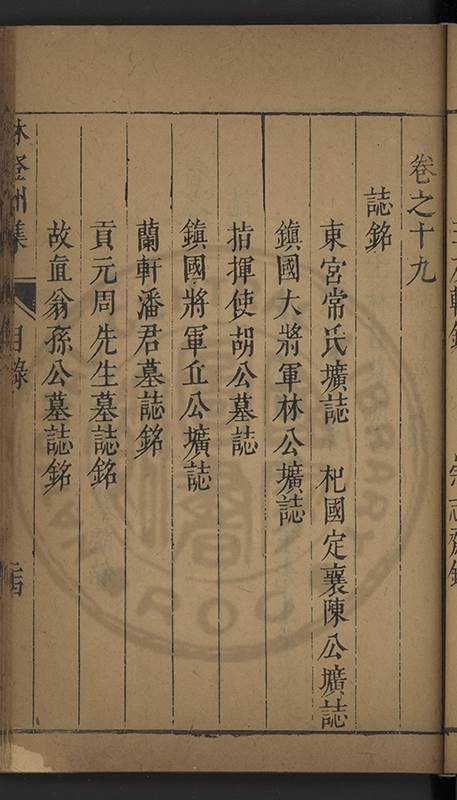 卷之十九
誌銘
東宮常氏壙誌　杞國定襄陳公壙誌
鎮國大將軍林公壙誌
指揮使胡公墓誌
鎮國將軍丘公壙誌
蘭軒潘君墓誌銘
貢元周先生墓誌銘
故直翁孫公墓誌銘
林登州集　目錄